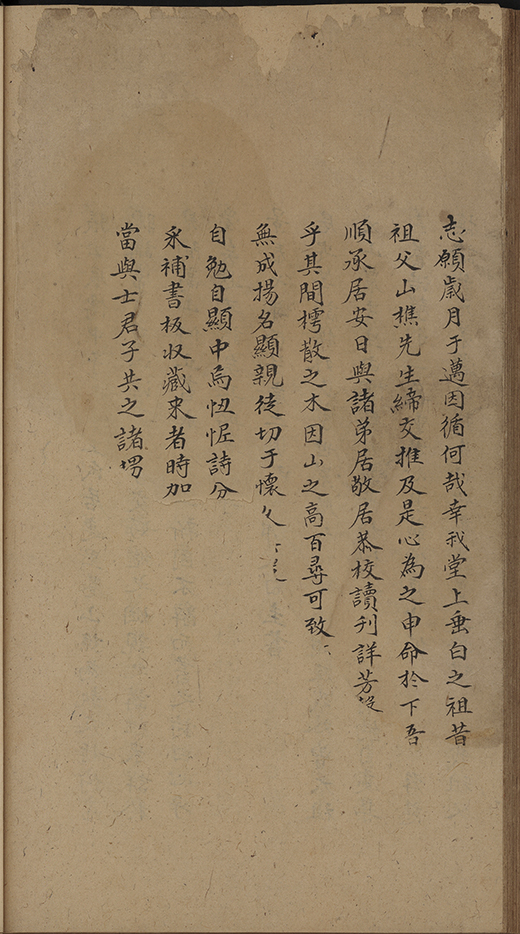 志願歲月于邁因循何哉幸我堂上垂白之祖昔
祖父山樵先生締交推及是心為之申命於下吾
順承居安日與諸弟居敬居恭校讀刊詳芳
乎其間樗散之木因山之高百尋可致
無成揚名顯親徒切于懷久
自勉自顯中焉忸怩詩分
永補書板収藏來者時加
當與士君子共之諸